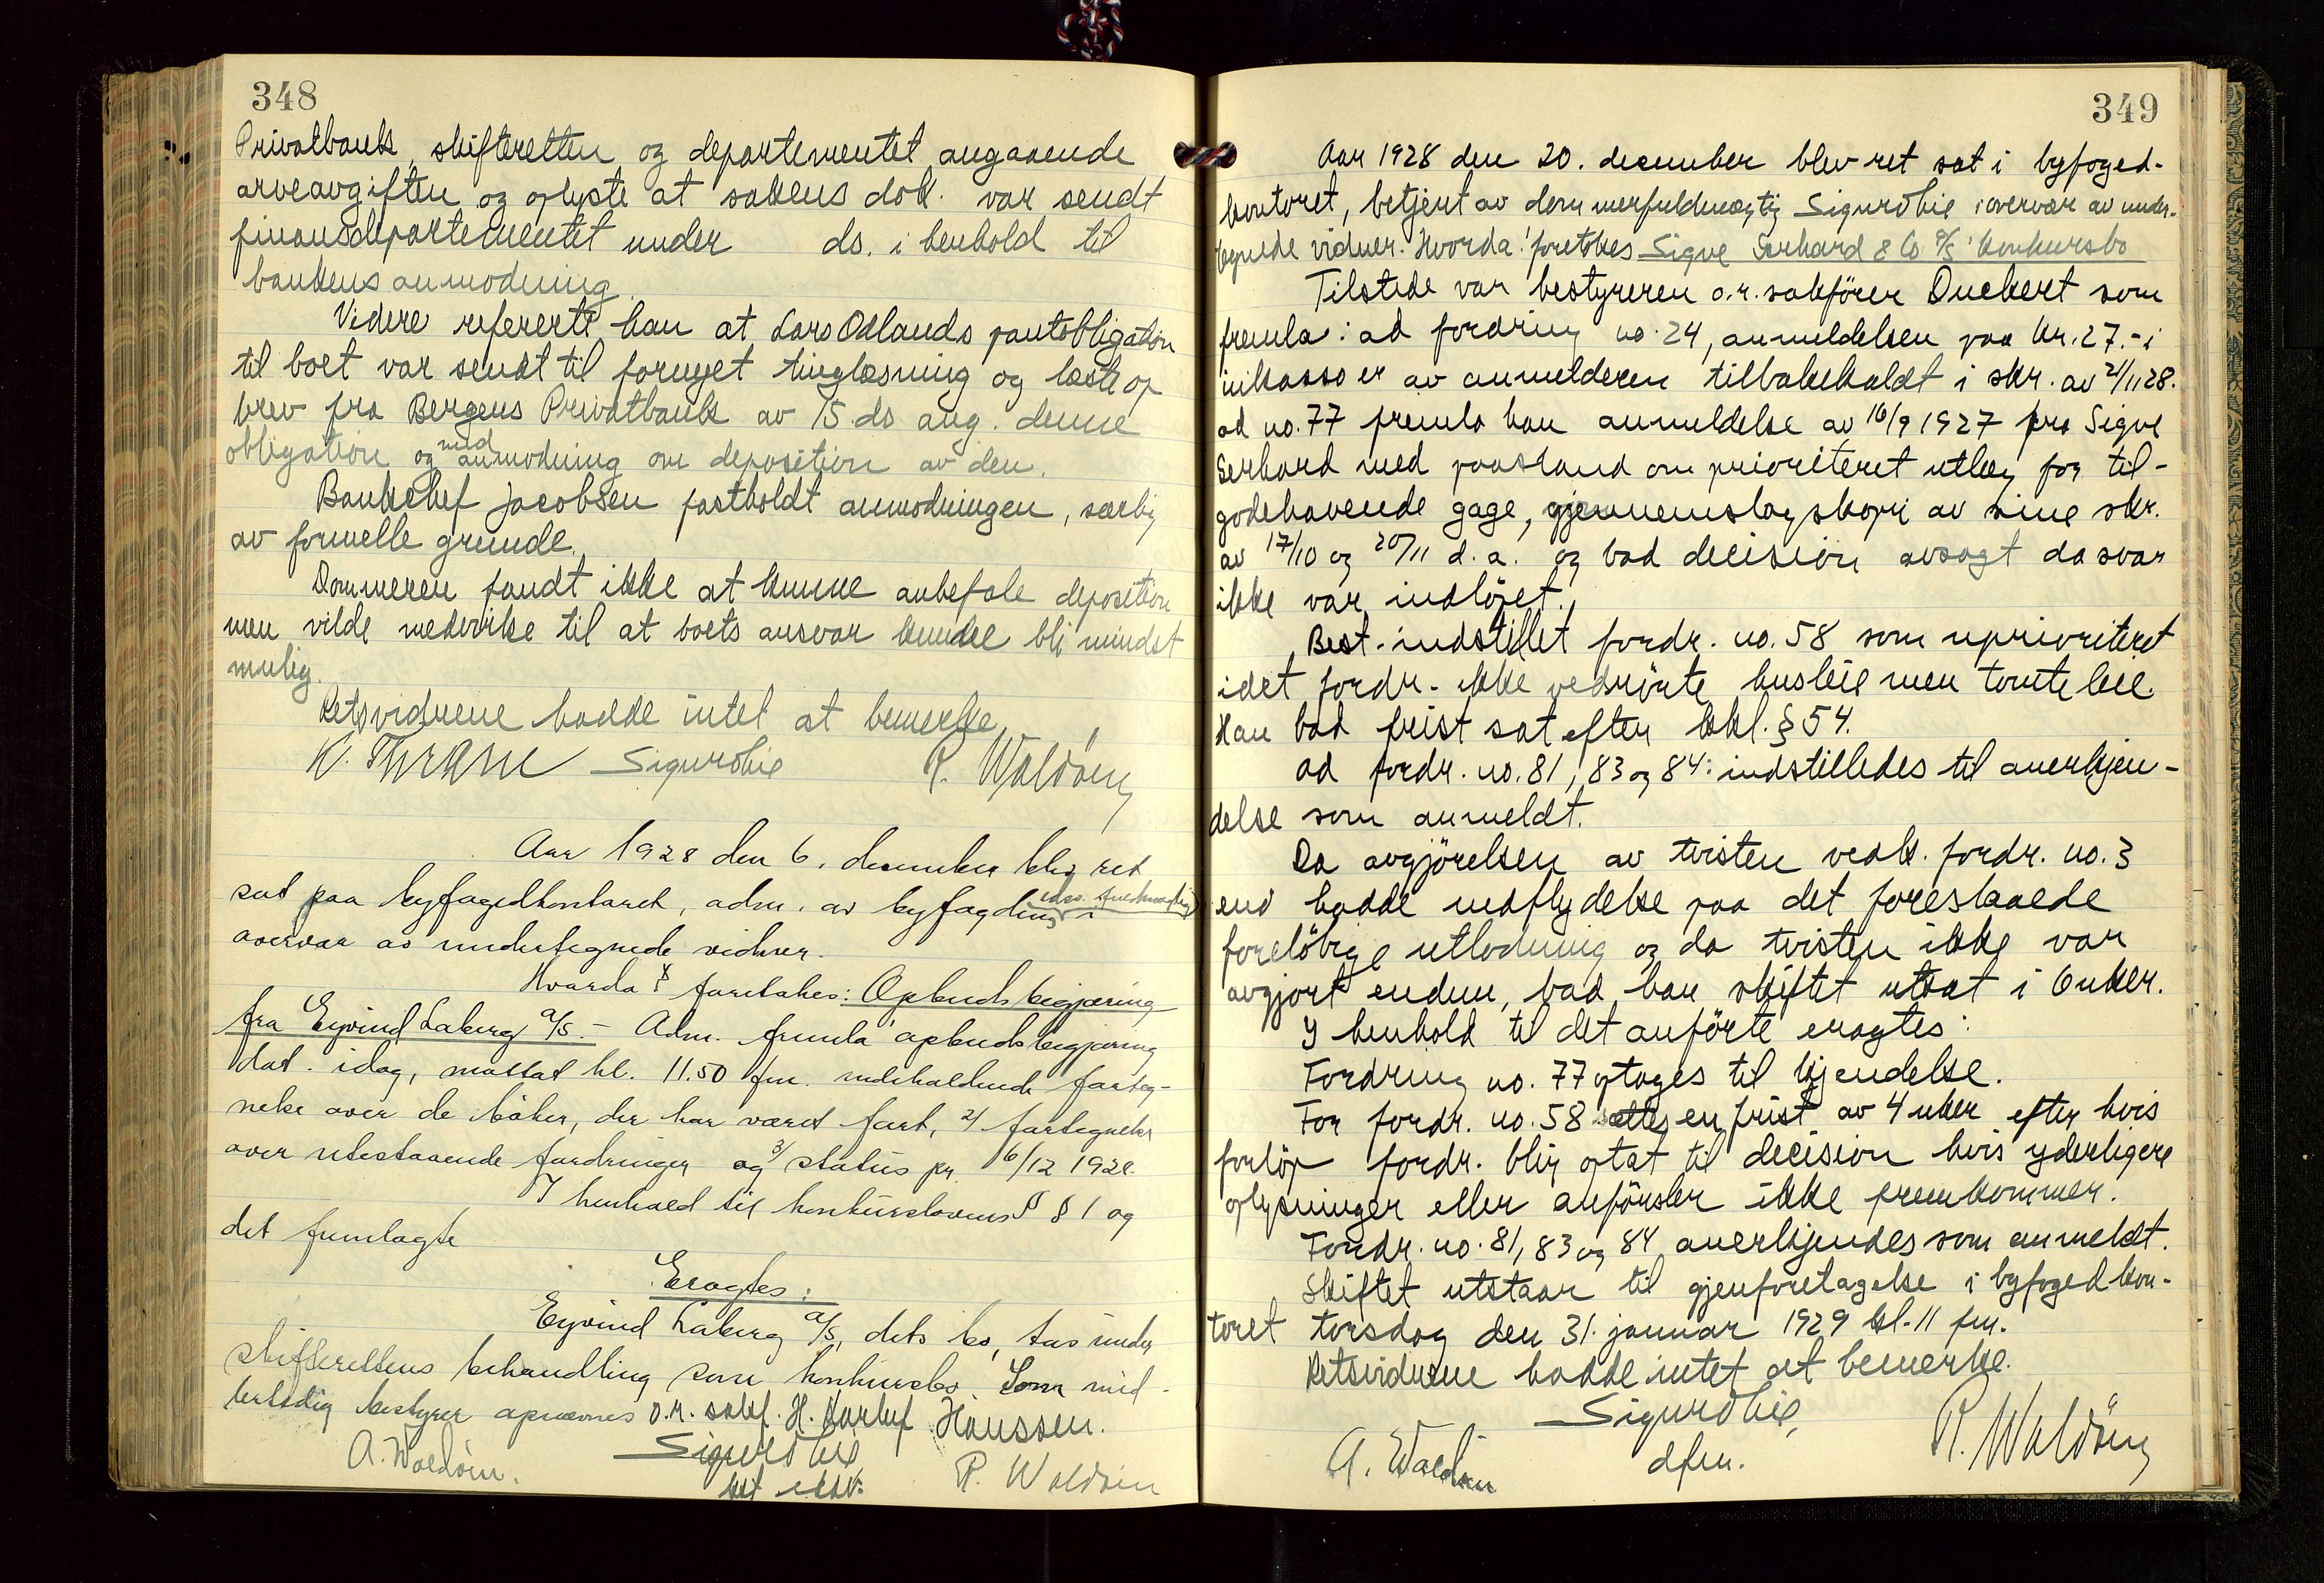 348
Privatbank, skifteretten og departementet angaaende
arveavgiften og oplyste at sakens dok. var sendt
finansdepartementet under ds. i henhold til
bankens anmodning.
Videre refererte han at Lars Odlands pantobligation
til boet var sendt til fornyet tinglæsning og læste op
brev fra Bergens Privatbank av 15 ds. ang. denne
obligation og med anmodning om deposition av den.
Bankchef Jacobsen fastholdt anmodningen, særlig
av formelle grunde.
Dommeren fandt ikke at kunne anbefale deposition
men vilde medvirke til at boets ansvar kunde bli mindst
mulig.
Retsvidnene hadde intet at bemerke.
K. Thrane Sigurd R. Waldöm
Aar 1928 den 6. december blev ret
sat paa byfogedkontoret, adm. av byfogdens i
overvær av undertegnede vidner.
Hvorda! foretokes: Opbudsbegjæring
fra Eyvind Laberg a/s. - Adm. fremla opbudsbegjæring
dat. idag, mottat kl. 11.50 fm. indeholdende forteg-
nelse over de bøker, der har været ført, 2/ fortegnelse
over utestaaende fordringer og 3/ status pr. 6/12 1928.
I henhold til konkurslovens § 1 og
det fremlagte
Eragtes:
Eyvind Laberg a/s, dets bo, tas under
skifterettens behandling som konkursbo. Som mid-
lertidig bestyrer opnævnes o.r. sakf. H. Hanssen.
A. Waldöm. Sigurd R. Waldöm
349
Aar 1928 den 20. december blev ret sat i byfoged-
kontoret, betjent av dommerfuldmægtig Sigurd i overvær av under-
tegnede vidner. Hvorda! foretokes Sigve Serhard & Co a/s' konkursbo
Tilstede var bestyreren o.r.sakfører Duckert som
fremla: ad fordring no. 24, anmeldelsen paa kr. 27.- i
inkasso er av anmelderen tilbakekaldt i skr. av 21/11 28.
ad no. 77 fremla han anmeldelse av 16/9 1927 fra Sigve
Serhard med paastand om prioriteret utlæg for til-
godehavende gage, gjennemslagskopi av sine skr.
av 17/10 og 20/11 d. a. og bad decision avsagt da svar
ikke var indløpet.
Best. indstillet fordr. no. 58 som uprioriteret
idet fordr. ikke vedrörte husleie men tomteleie.
Han bad frist sat efter kkl. § 54.
ad fordr. no. 81, 83 og 84: indstilledes til anerkjen-
delse som anmeldt.
Da avgjörelsen av tvisten vedk. fordr. no. 3
end hadde indflydelse paa det forestaaede
foreløbige utlodning og da tvisten ikke var
avgjort endnu, bad han skiftet utsat i 6 uker.
I henhold til det anförte eragtes:
Fordring no. 77 optages til kjendelse.
For fordr. no. 58 settes en frist av 4 uker efter hvis
forløp fordr. blir optat til decision hvis yderligere
oplysninger eller anförsler ikke fremkommer.
Fordr. no. 81, 83 og 84 anerkjendes som anmeldt.
Skiftet utstaar til gjenforetagelse i byfogedkon-
toret torsdag den 31. januar 1929 kl. 11 fm.
Retsvidnene hadde intet at bemerke.
Sigurd
A. Waldöm dfm. R. Waldöm